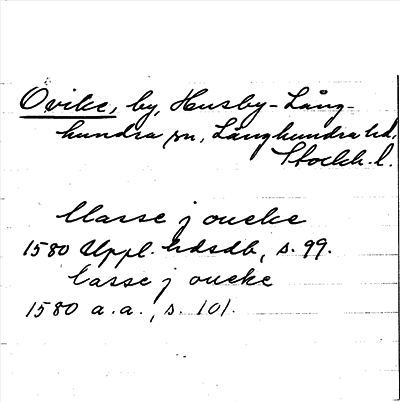 Ovike, by, Husby-Lång-
hundra sn, Långhundra hd,
Stockh. l.
Classe j oueke
1580 Uppl. hdsdb, s. 99.
Casse j oueke
1580 a.a., s. 101.